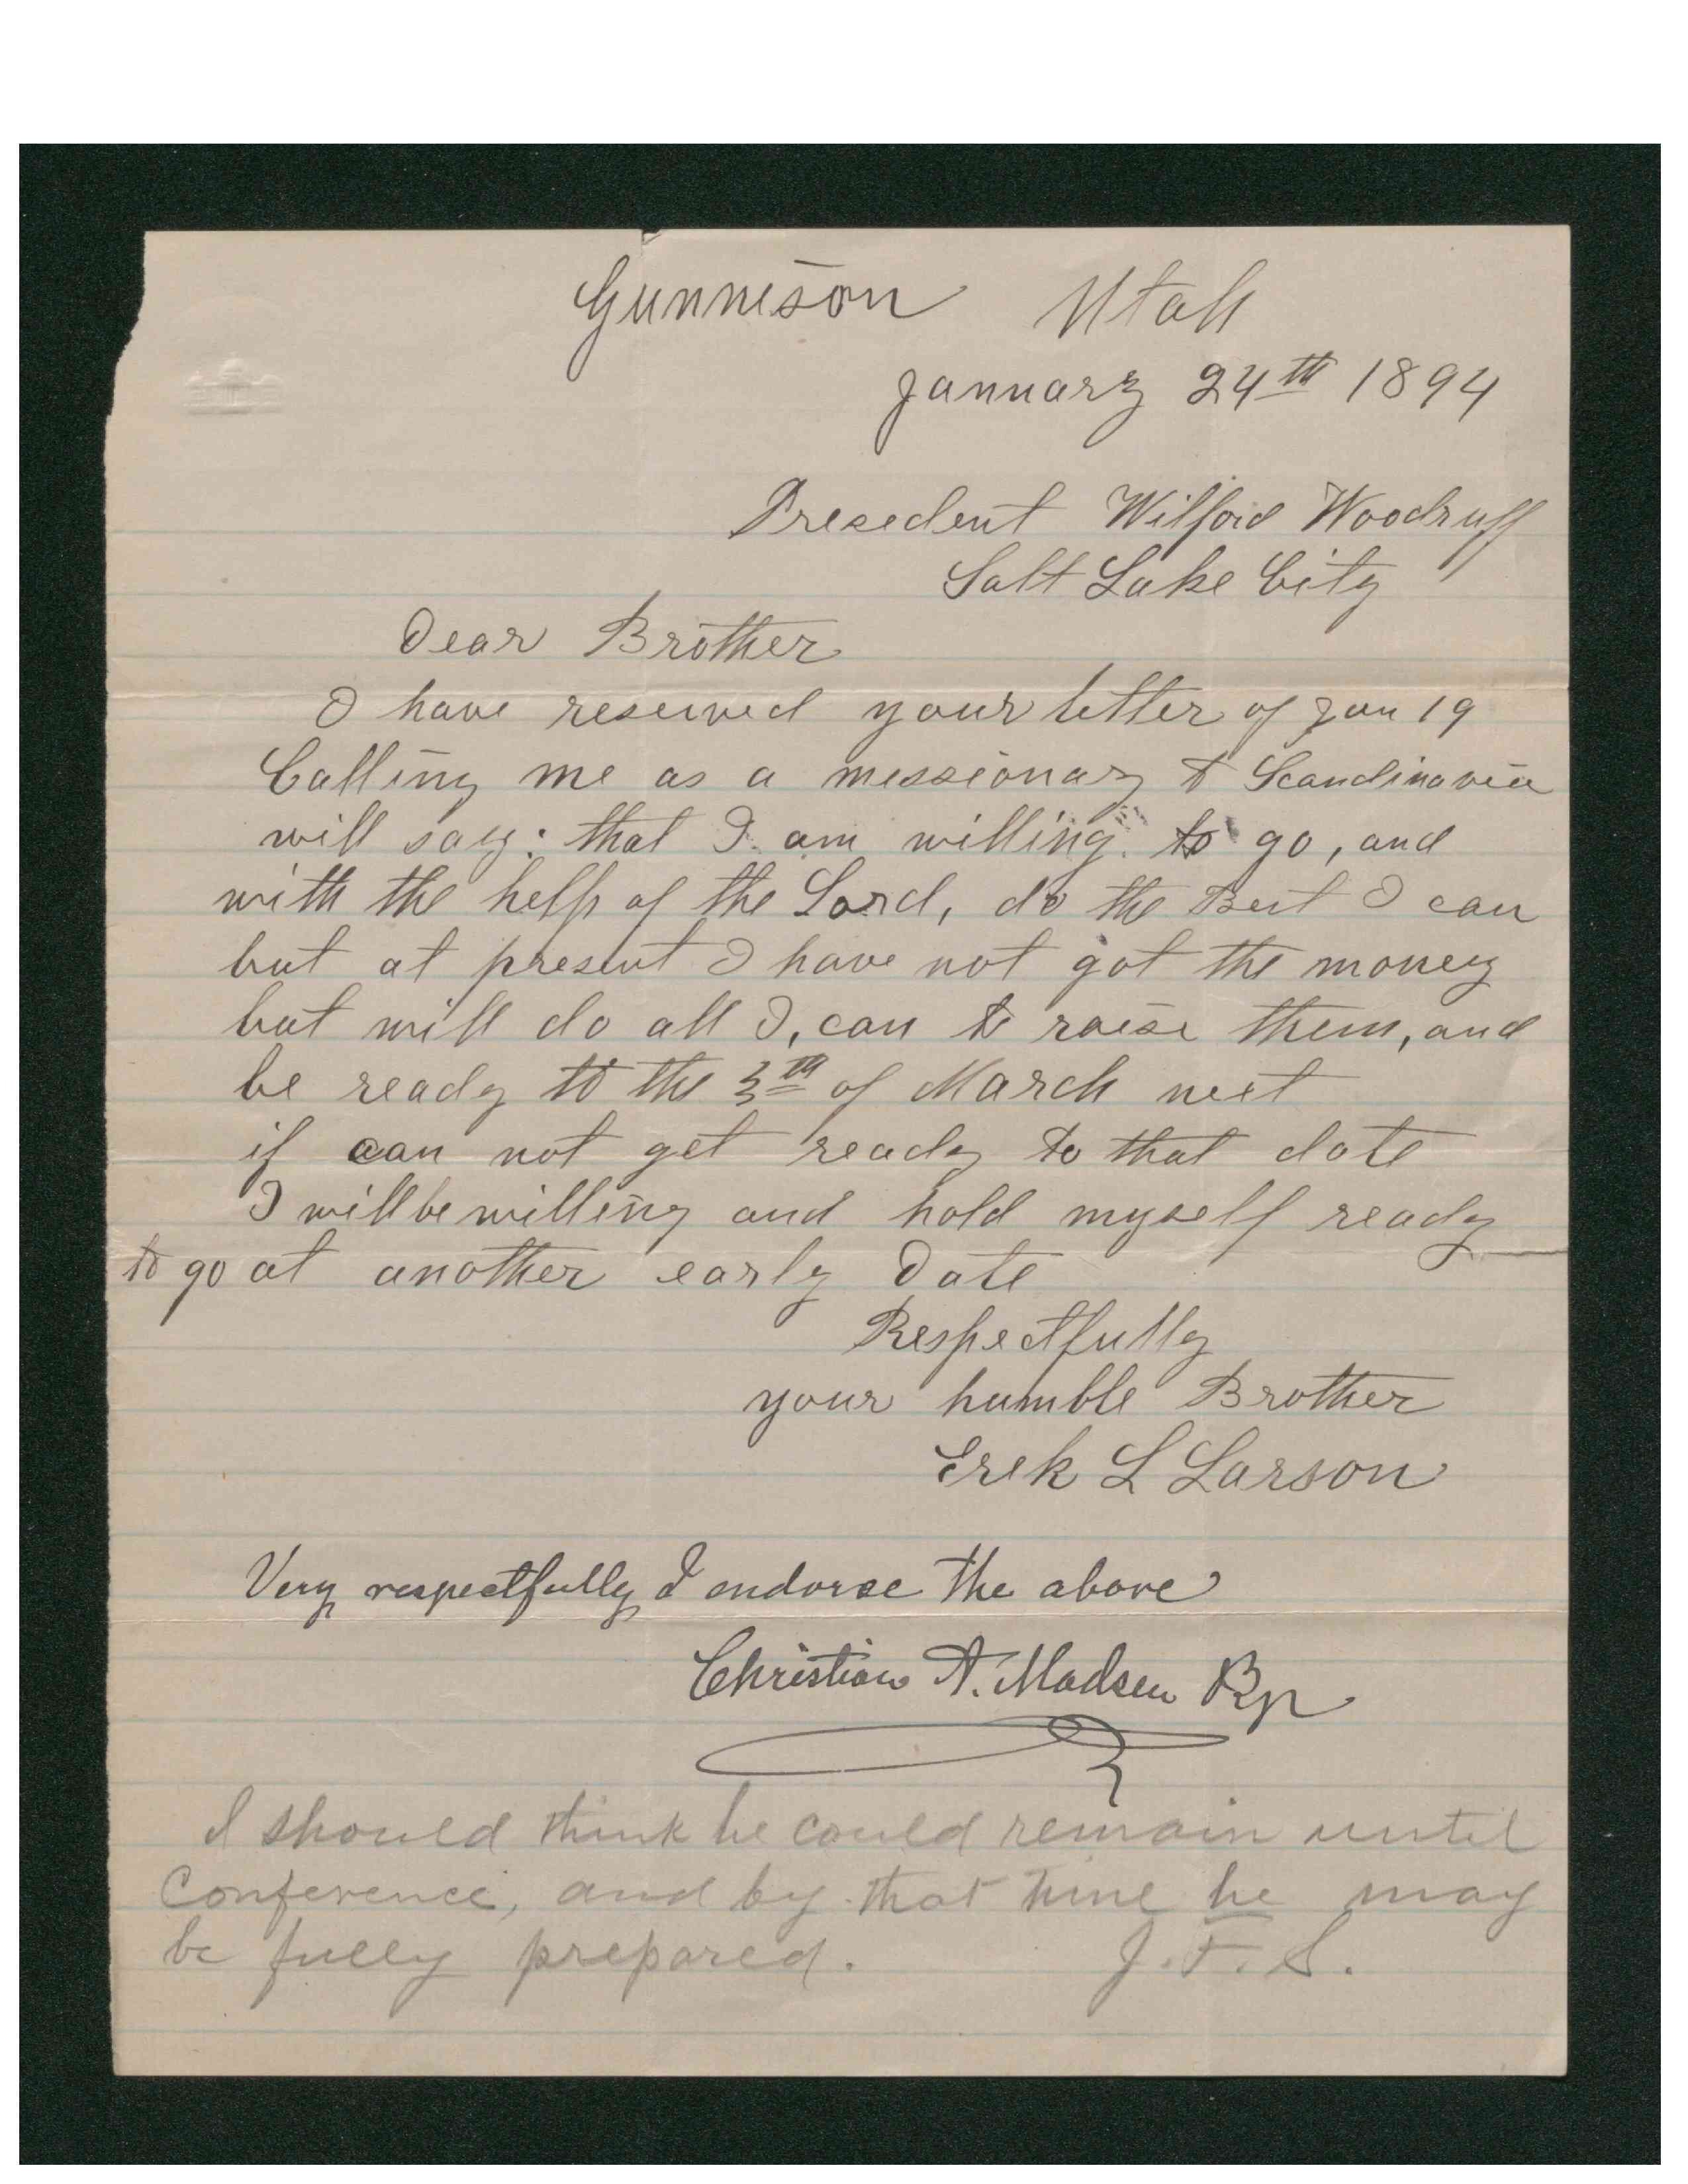 Gunneson Utah
January 24th 1894
Presedent Wilford Woodruff
Salt Lake City
Dear Brother
I have reseived your letter of Jan 19
Calling me as a messionary to Scandinavia
will say: that I am willing to go, and
with the help of the Lord, do the Best I can
but at present I have not got the money
but will do all I, can to raise them, and
be ready to the 3th of March next
if can not get ready to that date
I will be willing and hold myself ready
to go at another early Date
Respectfully
your humble Brother
Erek L Larson
Very respectfully I endorse the above
Christian A. Madsen Bp
I should think he could remain until
Conference, and by that time he may
be fully prepared. J. F. S.